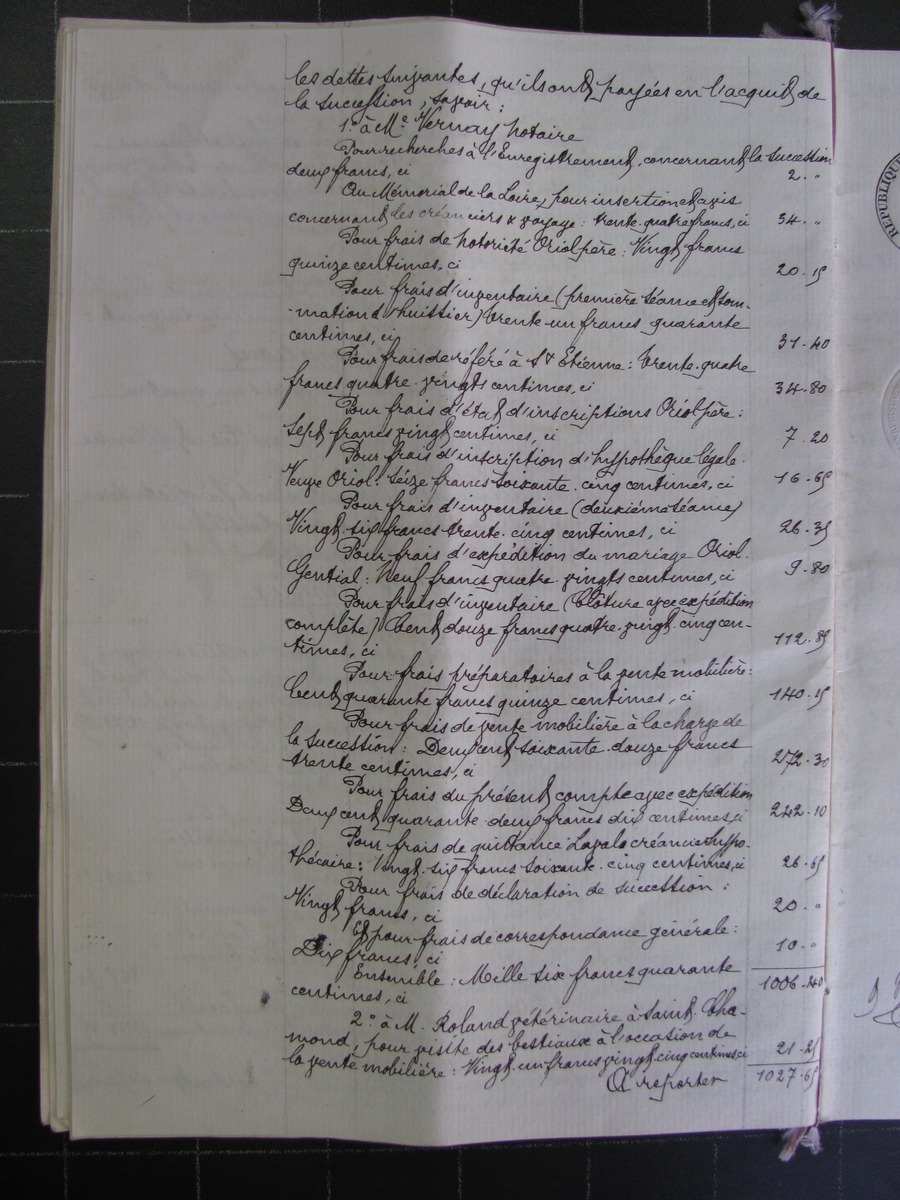 les dettes suivantes, qu'ils ont payées en l'acquit de
la succession, savoir :
1° à Me Vernay notaire
Pour recherches à l'Enregistrement, concernant la succession
deux francs, ci 2 . "
Au Mémorial de la Loire, pour insertion et avis
concernant les créanciers & voyage : trente-quatre francs, ci 34 . "
Pour frais de notoriété Oriol père : Vingt francs
quinze centimes, ci 20 . 15
Pour frais d'inventaire (première séance et som-
-mation d'huissier) trente-un francs quarante
centimes, ci 31 . 40
Pour frais de référé à St Etienne : trente-quatre
francs quatre-vingts centimes, ci 34 . 80
Pour frais d'état d'inscriptions Oriol père :
Sept francs vingt centimes, ci 7 . 20
Pour frais d'inscription d'hypothèque légale
Veuve Oriol : Seize francs soixante-cinq centimes, ci 16 . 65
Pour frais d'inventaire (deuxième séance)
Vingt-six francs trente-cinq centimes, ci 26 . 35
Pour frais d'expédition du mariage Oriol-
Gential : Neuf francs quatre-vingts centimes, ci 9 . 80
Pour frais d'inventaire (Clôture avec expédition
complète) Cent douze francs quatre-vingt-cinq cen-
times, ci 112 . 85
Pour frais préparatoires à la vente mobilière :
Cent quarante francs quinze centimes, ci 140 . 15
Pour frais de vente mobilière à la charge de
la succession : Deux cent soixante-douze francs
trente centimes, ci 272 . 30
Pour frais du présent compte avec expédition
Deux cent quarante-deux francs dix centimes, ci 242 . 10
Pour frais de quittance Lavals créancier hypo-
thécaire : Vingt-six francs soixante-cinq centimes, ci 26 . 65
Pour frais de déclaration de succession :
Vingt francs, ci 20 . "
Et pour frais de correspondance générale :
Dix francs, ci 10 . "
Ensemble : Mille six francs quarante
centimes, ci 1006 . 40
2° à M. Roland vétérinaire à Saint-Cha-
mond, pour visite des bestiaux à l'occasion de
la vente mobilière : Vingt-un francs vingt-cinq centimes, ci 21 . 25
A reporter 1027 . 65
REPUBLIQUE